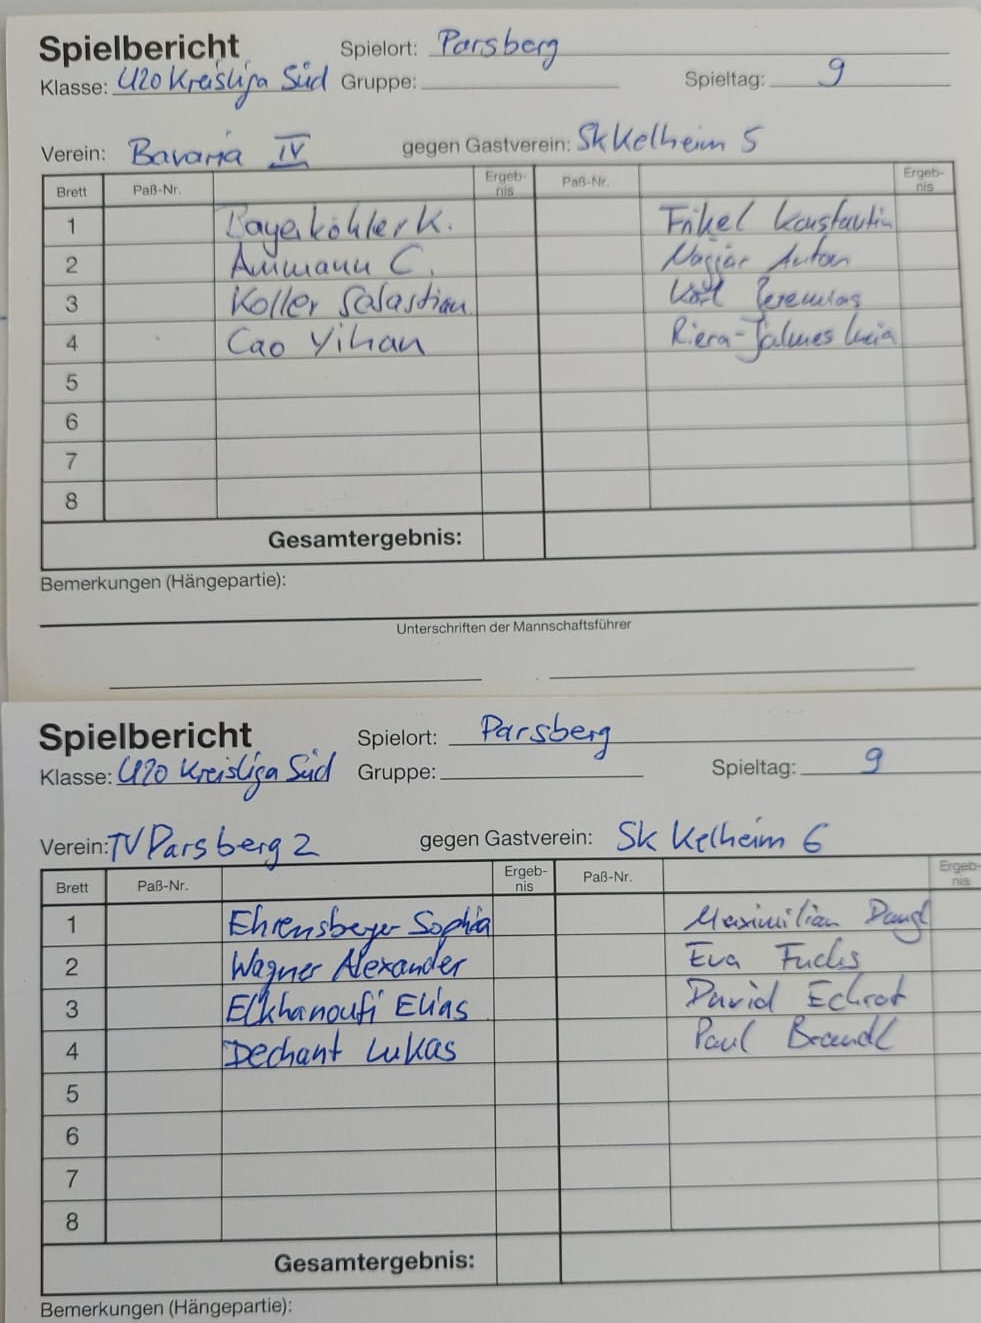 Spielbericht Spielort: Parsberg
Klasse: U20 Kreisliga Süd Gruppe: Spieltag: 9
Verein: Bavaria IV gegen Gastverein: Sk Kelheim 5
Brett Paß-Nr. Ergeb-nis Paß-Nr. Ergeb-nis
1 Bayerköhler K. Frikel Konstantin
2 Ammann C. Anton
3 Koller Jeremias
4 Cao Yihan Riera-
5
6
7
8
Gesamtergebnis:
Bemerkungen (Hängepartie):
Unterschriften der Mannschaftsführer
Spielbericht Spielort: Parsberg
Klasse: U20 Kreisliga Süd Gruppe: Spieltag: 9
Verein: TV Parsberg 2 gegen Gastverein: Sk Kelheim 6
Brett Paß-Nr. Ergeb-nis Paß-Nr. Ergeb-nis
1 Ehrensberger Sophia Maximilian Dangl
2 Wagner Alexander Eva Fuchs
3 Elkhanoufi Elias David
4 Dechant Lukas Paul Brandl
5
6
7
8
Gesamtergebnis:
Bemerkungen (Hängepartie):